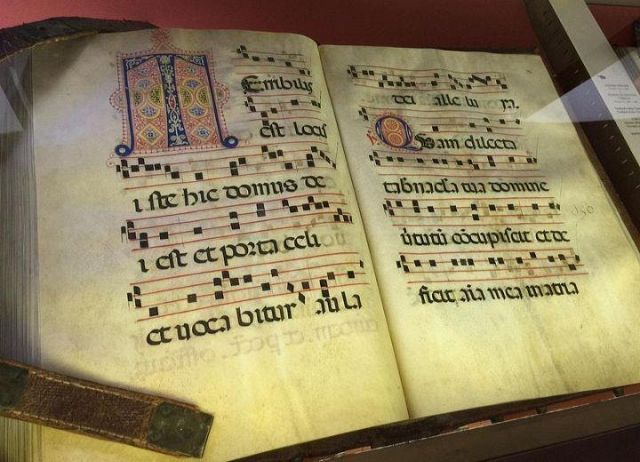 TErribilis
est locus
iste hic domus de
i est et porta celi
et uoca bitur au la
dei alle lu
Quam dilecta
tabnacla tua domine
ūtutū cōcupiscit et de
ficit aīa mea in atria